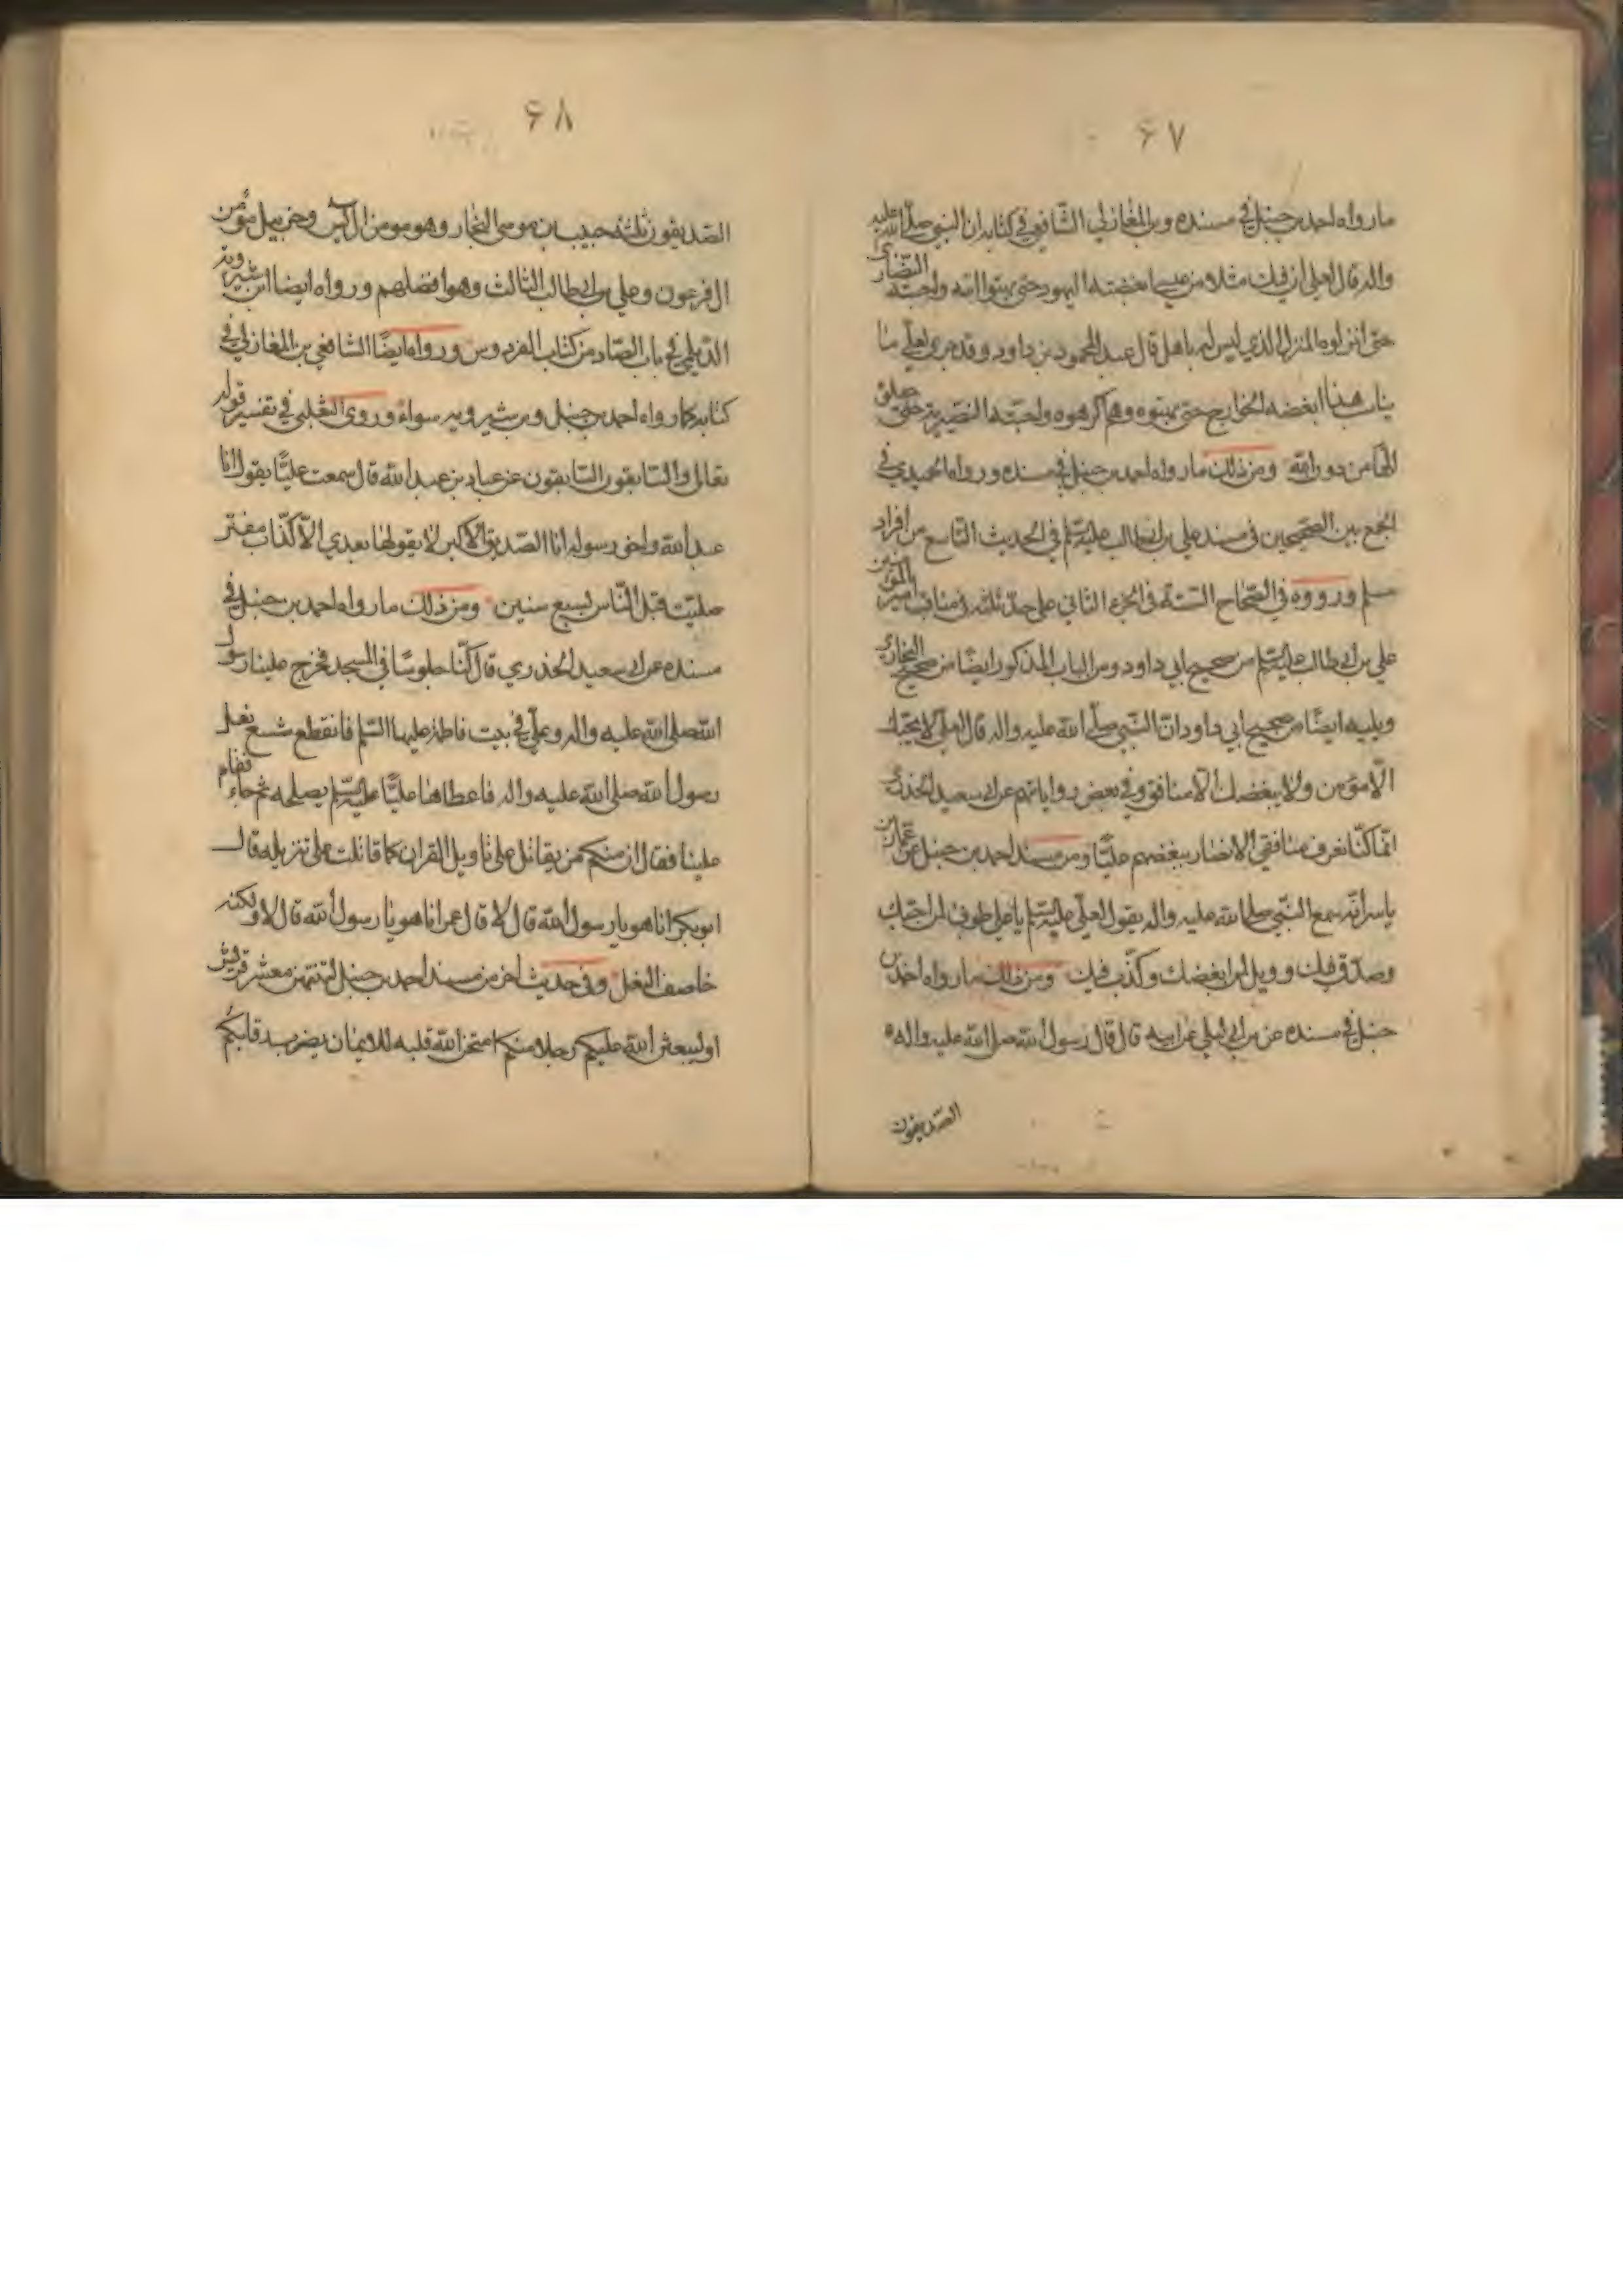 ۶۷
ما رواه احمد بن حنبل في مسنده وبن المغازلي الشافعي في كتابه ان النبي صلى الله عليه
واله قال لعلي ان فيك مثلا من عيسى ابغضته اليهود حتى بهتوا امه واحبته النصارى
حتى انزلوه المنزل الذي ليس له باهل قال عبد المحمود بن داود وقد جرى لعلي ما
يناسب هذا ابغضه الخوارج حتى بهتوه وهم كرهوه واحبته النصيرية حتى جعلوه
الها من دون الله ومن ذلك ما رواه احمد بن حنبل في مسنده ورواه الحميدي في
الجمع بين الصحيحين في مسند علي بن ابي طالب عليه السلم في الحديث التاسع من افراد
مسلم ورووه في الصحاح الستة في الجزء الثاني على حد ثلثه في مناقب امير المؤمنين
علي بن ابي طالب عليه السلم من صحيح ابي داود ومن الباب المذكور ايضا من صحيح البخاري
ويليه ايضا من صحيح ابي داود ان النبي صلى الله عليه واله قال لعلي لا يحبك
الا مؤمن ولا يبغضك الا منافق وفي بعض رواياتهم عن ابي سعيد الخدري
انما كنا نعرف منافقي الانصار ببغضهم عليا ومن مسند احمد بن حنبل عن عمار بن
ياسر انه سمع النبي صلى الله عليه واله يقول لعلي عليه السلم يا علي طوبى لمن احبك
وصدق فيك وويل لمن ابغضك وكذب فيك ومن ذلك ما رواه احمد بن
حنبل في مسنده عن بن ابي ليلى عن ابيه قال قال رسول الله صلى الله عليه واله
الصديقون
۶۸
الصديقون ثلثة حبيب بن موسى النجار وهو مومن ال يس وخربيل مؤمن
ال فرعون وعلي بن ابي طالب الثالث وهو افضلهم ورواه ايضا ابن شيرويه
الديلمي في باب الصاد من كتاب الفردوس ورواه ايضا الشافعي بن المغازلي في
كتابه كما رواه احمد بن حنبل وبن شيرويه سواء وروى الثعلبي في تفسير قوله
تعالى والسابقون السابقون عن عباد بن عبد الله قال سمعت عليا يقول انا
عبد الله واخو رسوله انا الصديق الاكبر لا يقولها بعدي الا كذاب مفتر
صليت قبل الناس بسبع سنين ومن ذلك ما رواه احمد بن حنبل في
مسنده عن ابي سعيد الخدري قال كنا جلوسا في المسجد فخرج علينا رسول
الله صلى الله عليه واله وعلي في بيت فاطمة عليها السلم فانقطع شسع نعل
رسول الله صلى الله عليه واله فاعطاها عليا عليه السلم يصلحه ثم جاء فقام
علينا فقال ان منكم من يقاتل على تاويل القران كما قاتلت على تنزيله قال
ابو بكر انا هو يا رسول الله قال لا قال عمر انا هو يا رسول الله قال لا ولكنه
خاصف النعل وفي حديث اخر من مسند احمد بن حنبل لتنتهن معشر قريش
او ليبعثن الله عليكم رجلا منكم امتحن الله قلبه للايمان يضرب رقابكم